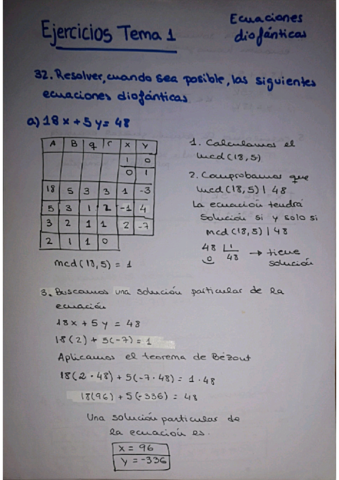 Ejercicios Tema 1
Ecuaciones
diofánticas
32. Resolver, cuando sea posible, las siguientes
ecuaciones diofánticas
a) 18x + 5y = 48
A B q r x y
1 0
0 1
18 5 3 3 1 -3
5 3 1 2 -1 4
3 2 1 1 2 -7
2 1 1 0
mcd (18,5) = 1
1. Calculamos el
mcd (18,5)
2. Comprobamos que
mcd (18,5) | 48
La ecuación tendrá
solución si y solo si
mcd (18,5) | 48
48 | 1
0 48 → tiene
solución
3. Buscamos una solución particular de la
ecuación
18x + 5y = 48
18(2) + 5(-7) = 1
Aplicamos el teorema de Bézout
18(2·48) + 5(-7·48) = 1·48
18(96) + 5(-336) = 48
Una solución particular de
la ecuación es
x = 96
y = -336